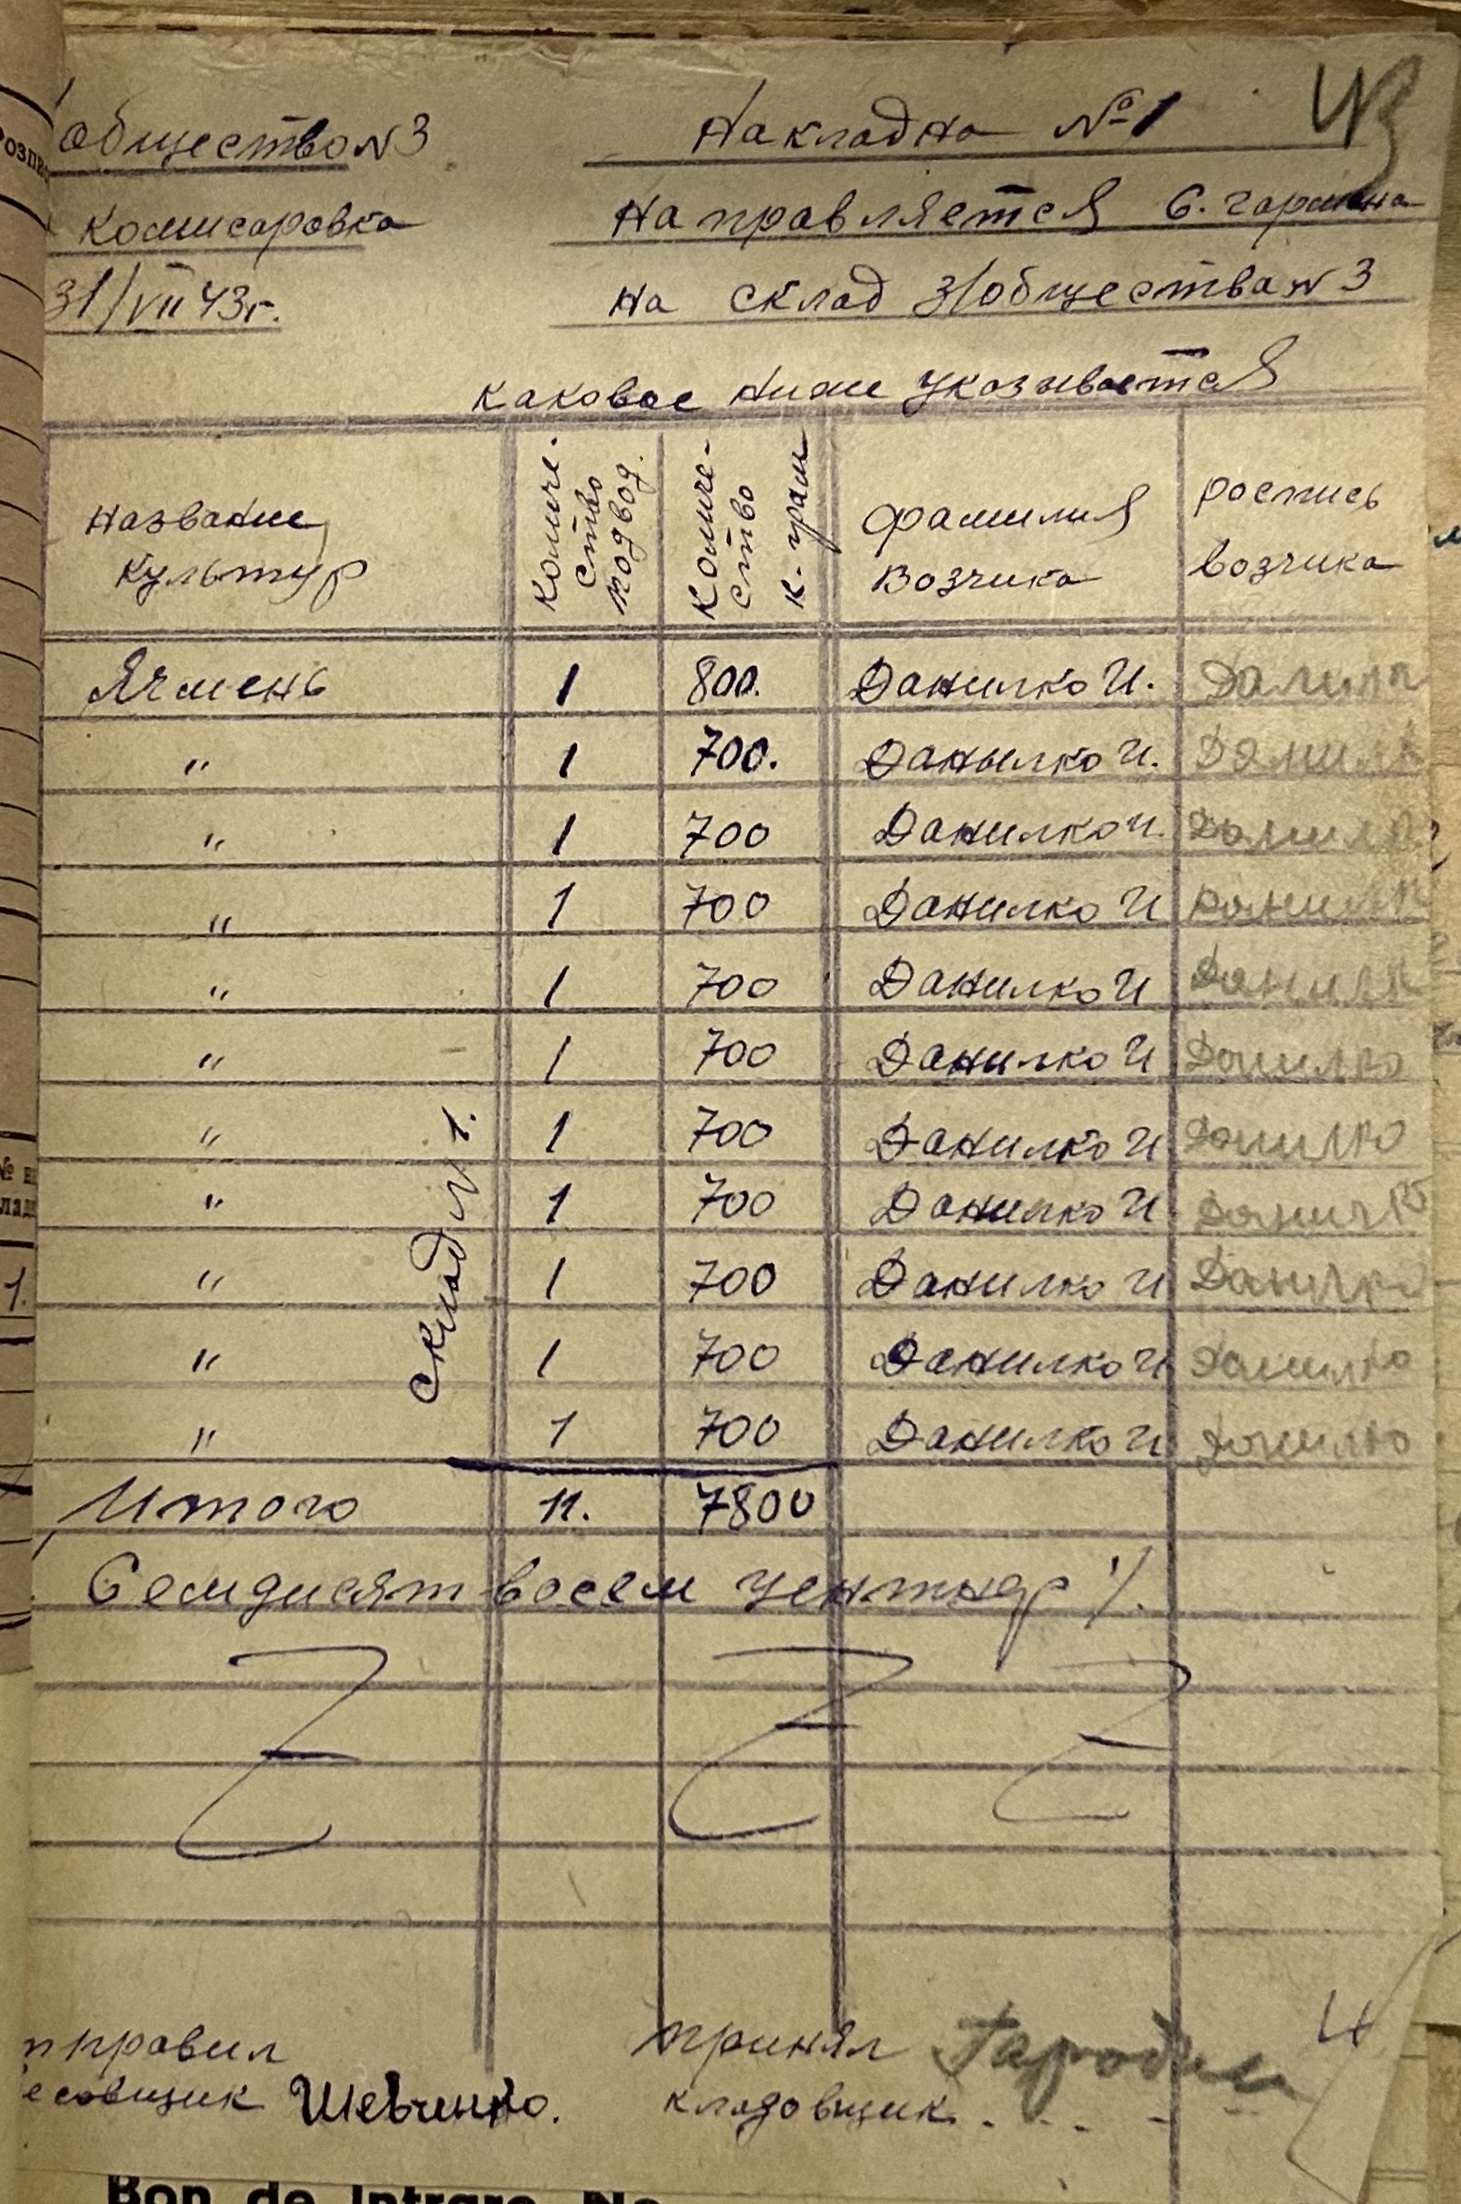 общество N 3
Накладна № 1
Комисаровка
Направляется с. гармана
31/VII 43г.
на склад з/общества N 3
каковое ниже указывается
Название культур | Количество подвод. | Количество к-грам | Фамилия возчика | роспись возчика
Ячмень 1 800. Данилко И. Данилк
" 1 700. Данылко И. Данилк
" 1 700 Данилко И. Данилк
" 1 700 Данилко И Данилк
" 1 700 Данилко И Данилк
" 1 700 Данилко И Данилко
" 1 700 Данилко И Данилко
" 1 700 Данилко И Данилко
" 1 700 Данилко И Данилко
" 1 700 Данилко И Данилко
" 1 700 Данилко И Данилко
Склад N 1.
Итого 11. 7800
Семдисят восем центнер
тправил принял
есовщик Шевченко. кладовщик
Bon de intrare No